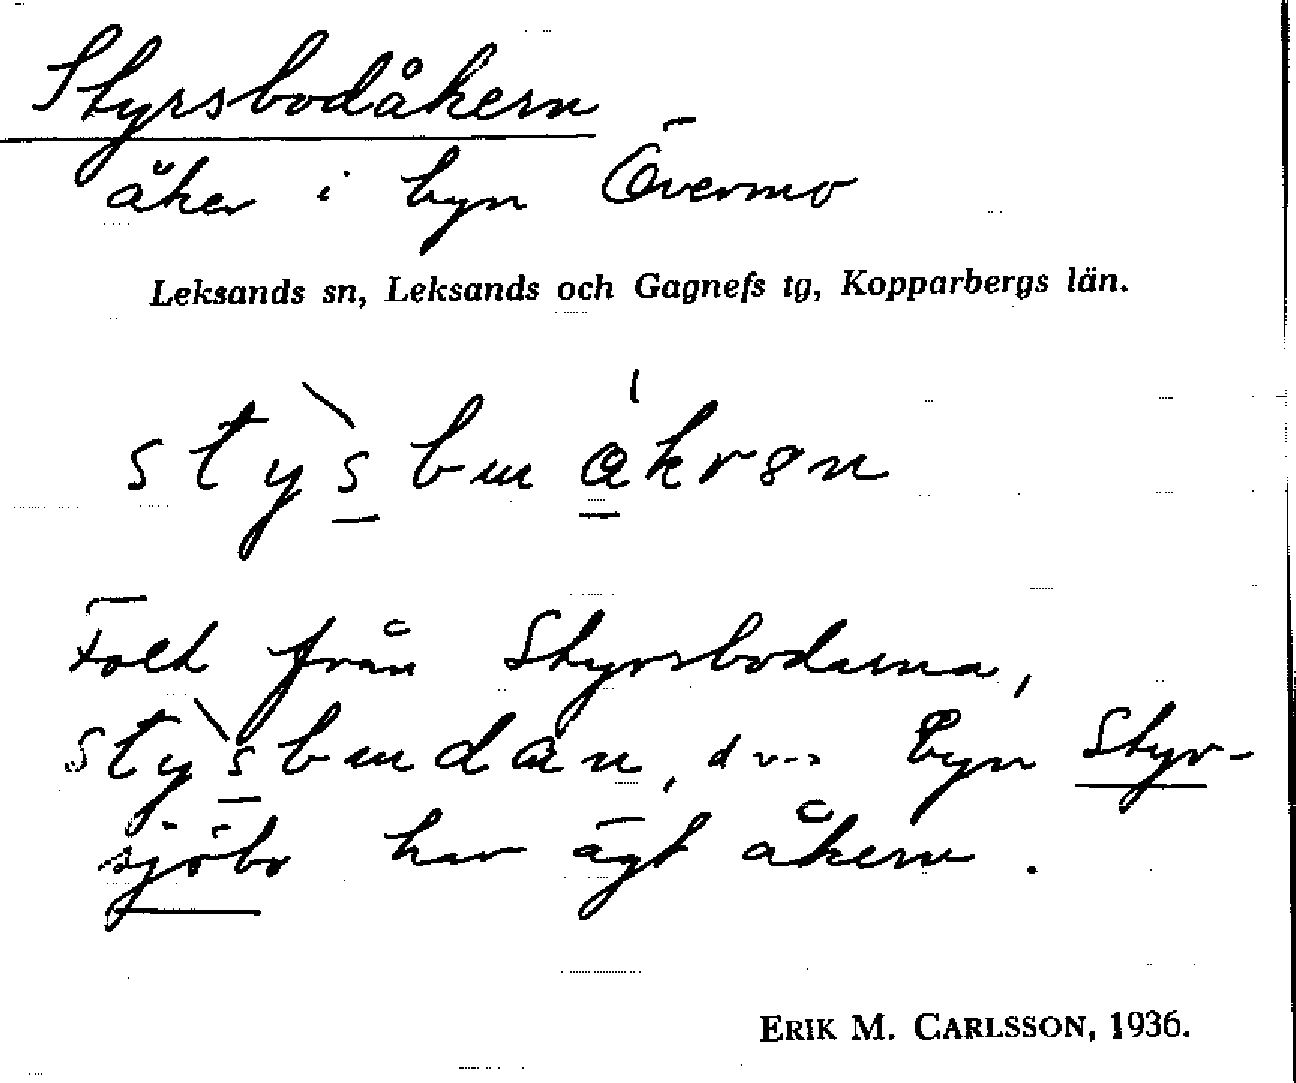 Styrsbodåkern
åker i byn Övermo
Leksands sn, Leksands och Gagnefs tg, Kopparbergs län.
Folk från Styrsbodarna,
dvs byn Styr-
sjöbo har ägt åkern.
ERIK M. CARLSSON, 1936.